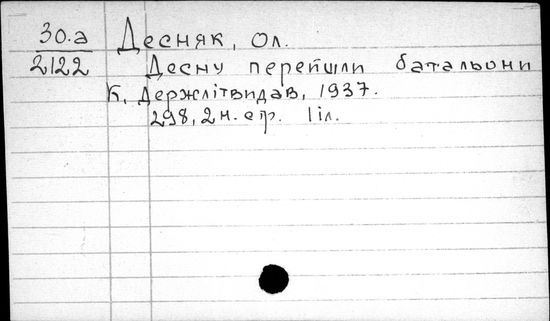 30.а Десняк, Ол.
2122 Десну перейшли батальони
К, Держлітвидав, 1937.
298, 2 н. стр. 1 іл.